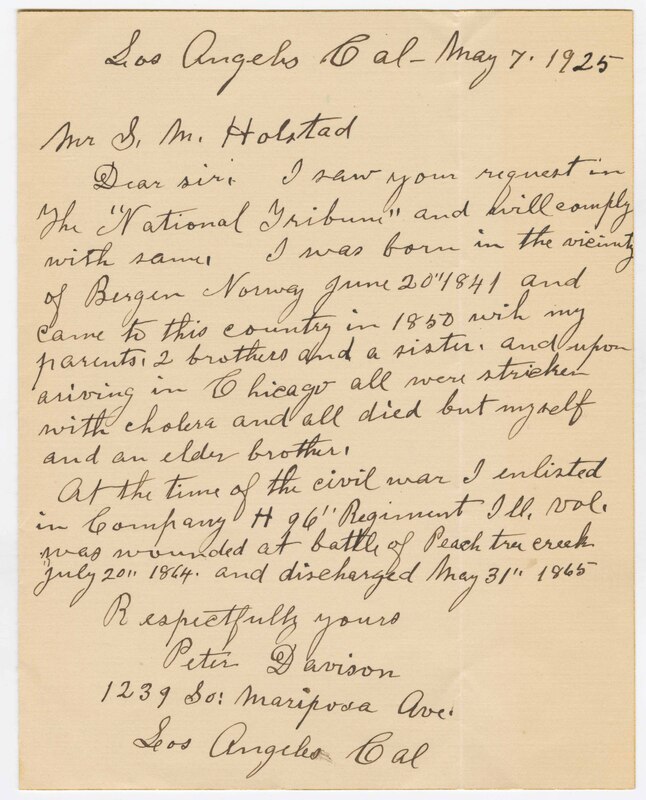 Los Angeles Cal - May 7. 1925
Mr S. M. Holstad
Dear sir. I saw your request in
The "National Tribune" and will comply
with same. I was born in the vicinity
of Bergen Norway June 20" 1841 and
came to this country in 1850 wih my
parents. 2 brothers and a sister. and upon
ariving in Chicago all were stricken
with cholera and all died but myself
and an elder brother.
At the time of the civil war I enlisted
in Company H 96" Regiment Ill. Vol.
was wounded at battle of Peach tree creek
July 20" 1864. and discharged May 31" 1865
Respectfully yours
Peter Davison
1239 So: Mariposa Ave.
Los Angeles Cal